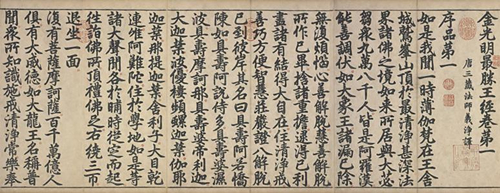 金光明最勝王經卷第一
唐三藏法師義淨譯
序品第一
如是我聞一時薄伽梵在王舍
城鷲峯山頂於最清淨甚深法
界諸佛之境如來所居與大苾
芻衆九萬八千人皆是阿羅漢
能善調伏如大象王諸漏已除
無復煩惱心善解脫慧善解脫
所作已畢捨諸重擔逮得己利
盡諸有結得大自在住清淨戒
善巧方便智慧莊嚴證八解脫
已到彼岸其名曰具壽阿若憍
陳如具壽阿說侍多具壽婆濕
波具壽摩訶那摩具壽婆帝利迦
大迦葉波優樓頻螺迦葉伽耶
迦葉那提迦葉舍利子大目乾
連唯阿難陀住於學地如是等
諸大聲聞各於晡時從定而起
往詣佛所頂禮佛足右繞三帀
退坐一面
復有菩薩摩訶薩百千萬億人
俱有大威德如大龍王名稱普
聞衆所知識施戒清淨常樂奉